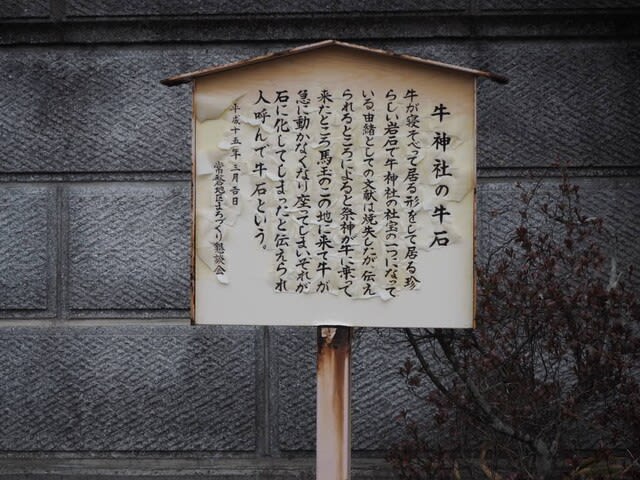 牛神社の牛石
牛が寝そべって居る形をして居る珍
らしい岩石で牛神社の社宝の一つになって
いる由緒としての文献は焼失したが伝え
られるところによると祭神が牛に乗って
来たところ馬玉のこの地に来て牛が
急に動かなくなり座ってしまいそれが
石に化してしまったと伝えられ
人呼んで牛石という。
平成十五年三月吉日
常磐地区まちづくり懇談会